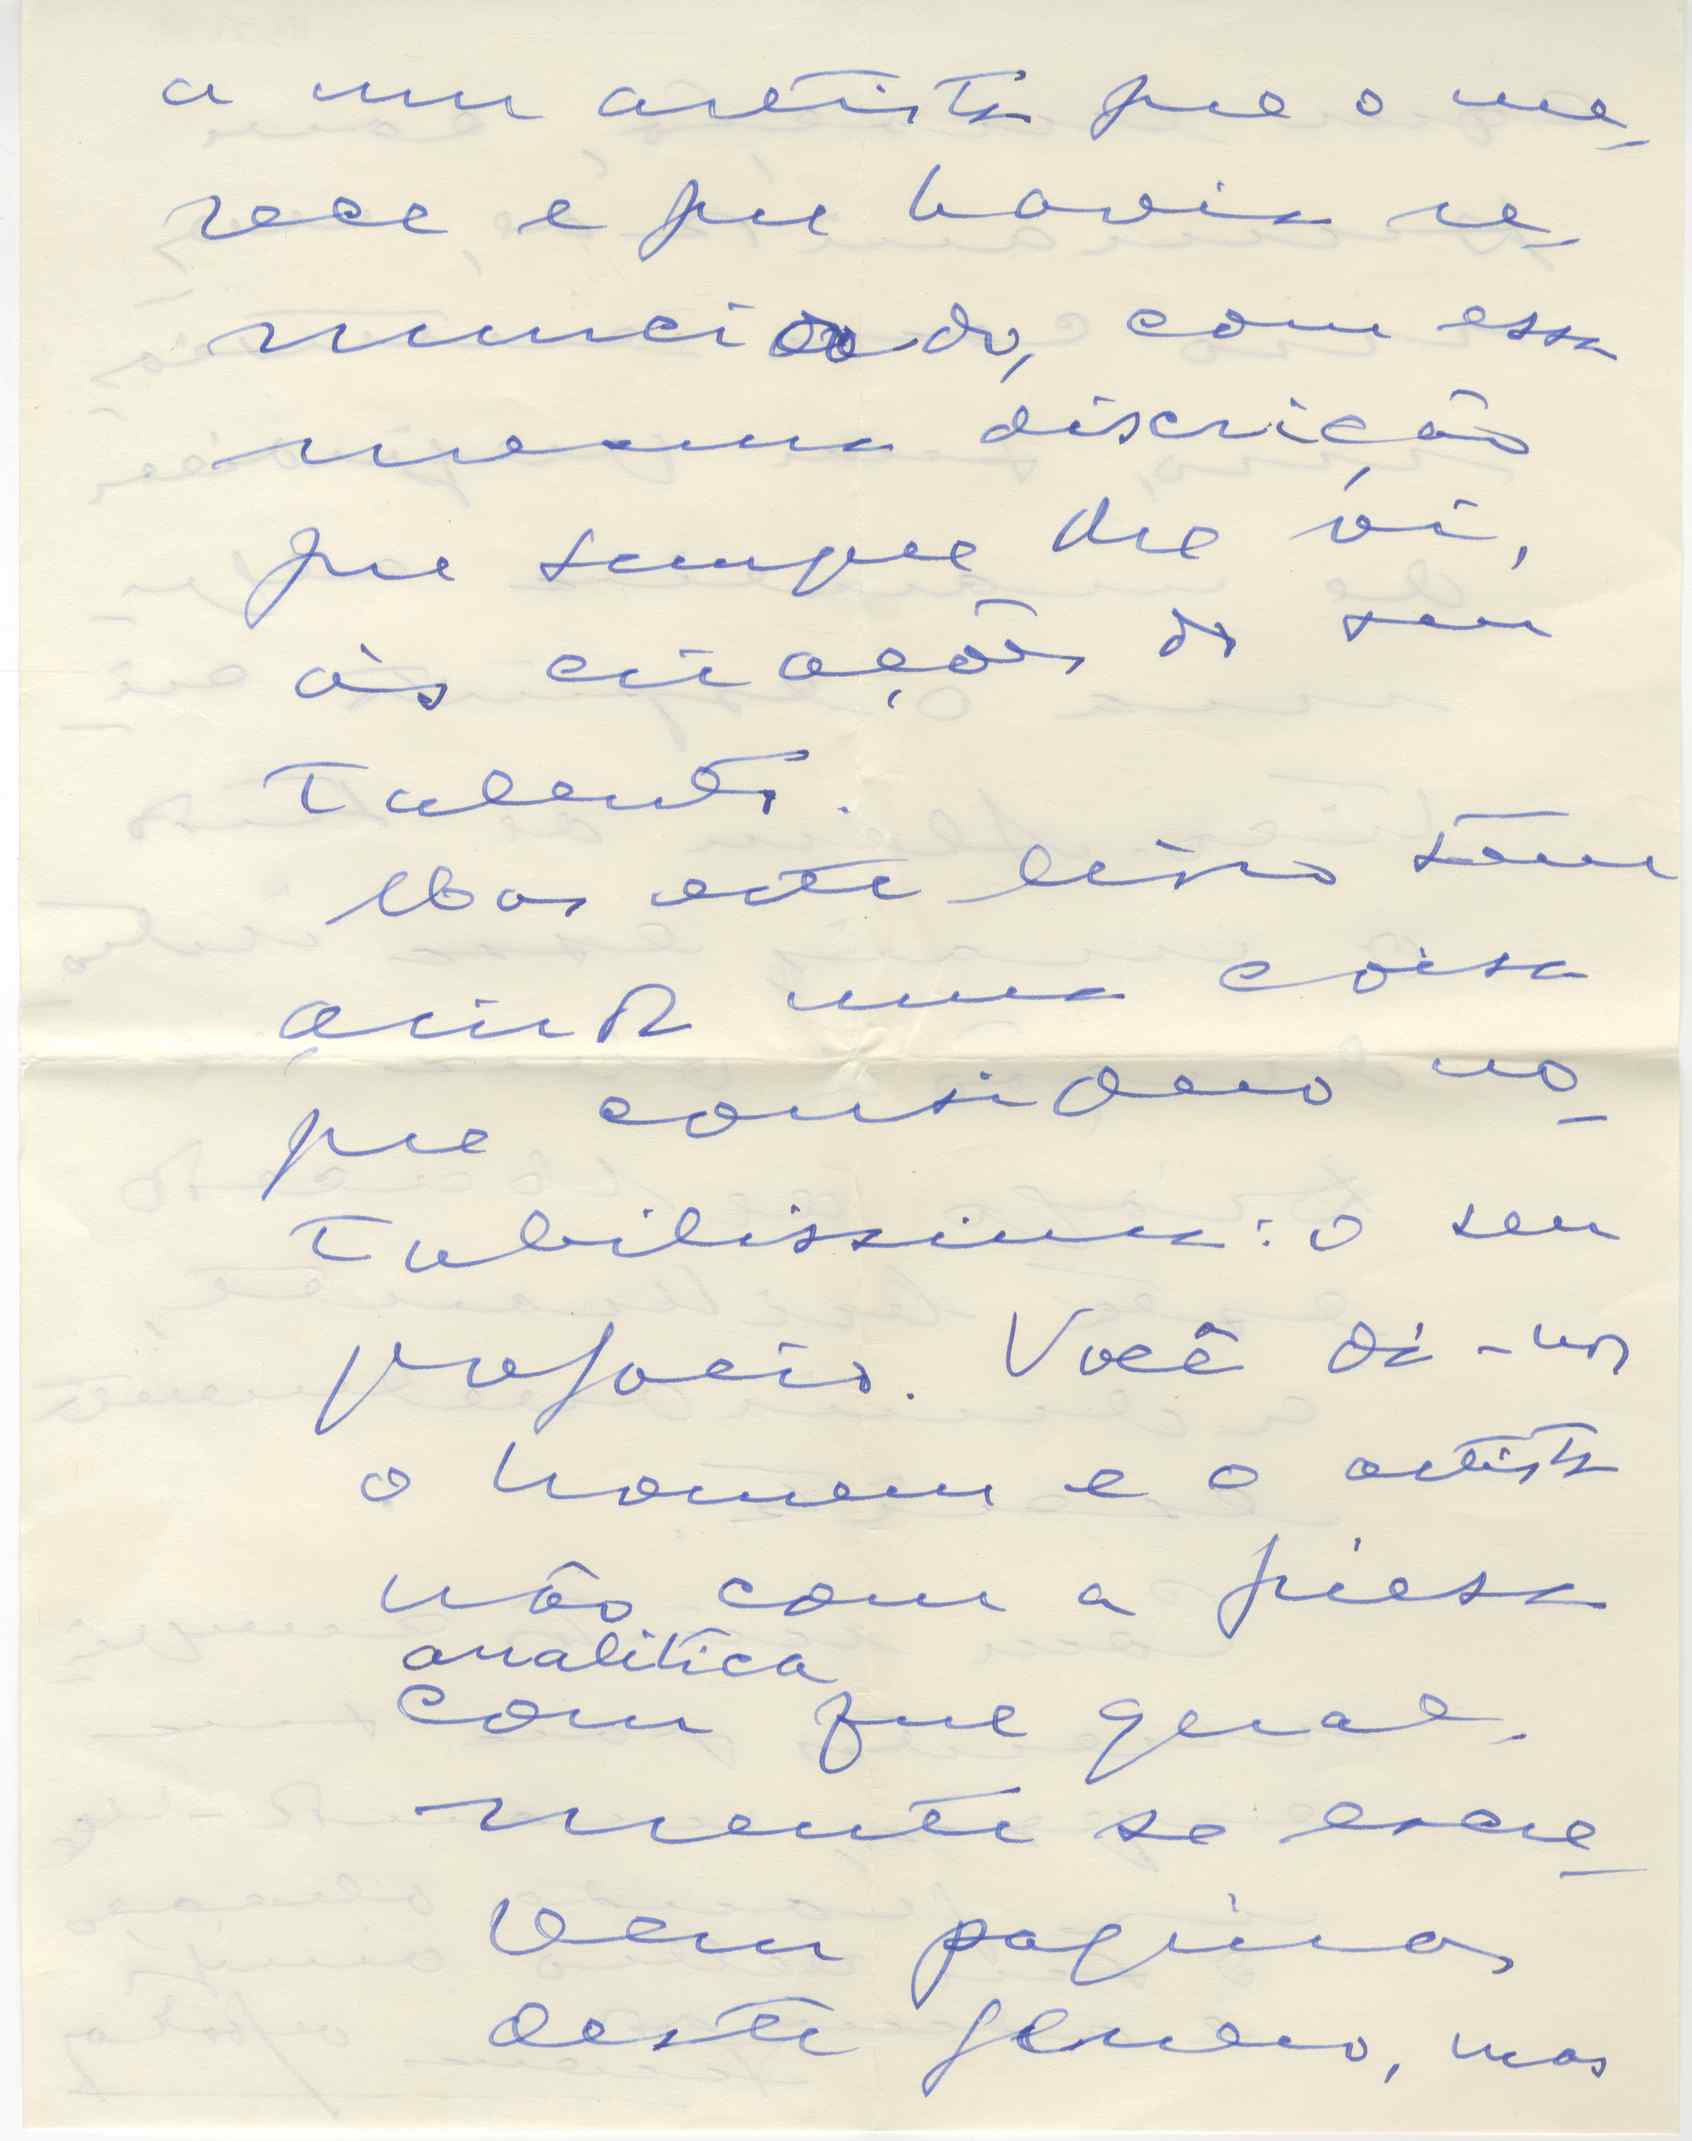 a um artista que o me-
rece e que havia re-
nunciado, com essa
mesma discrição
que sempre lhe vi,
às criações do seu
talento.
Mas este livro tem
ainda uma coisa
que considero no-
tabilissima: o seu
prefacio. Você dá-nos
o homem e o artista
não com a frieza
analitica
com que geral-
mente se escre-
vem paginas
deste genero, mas